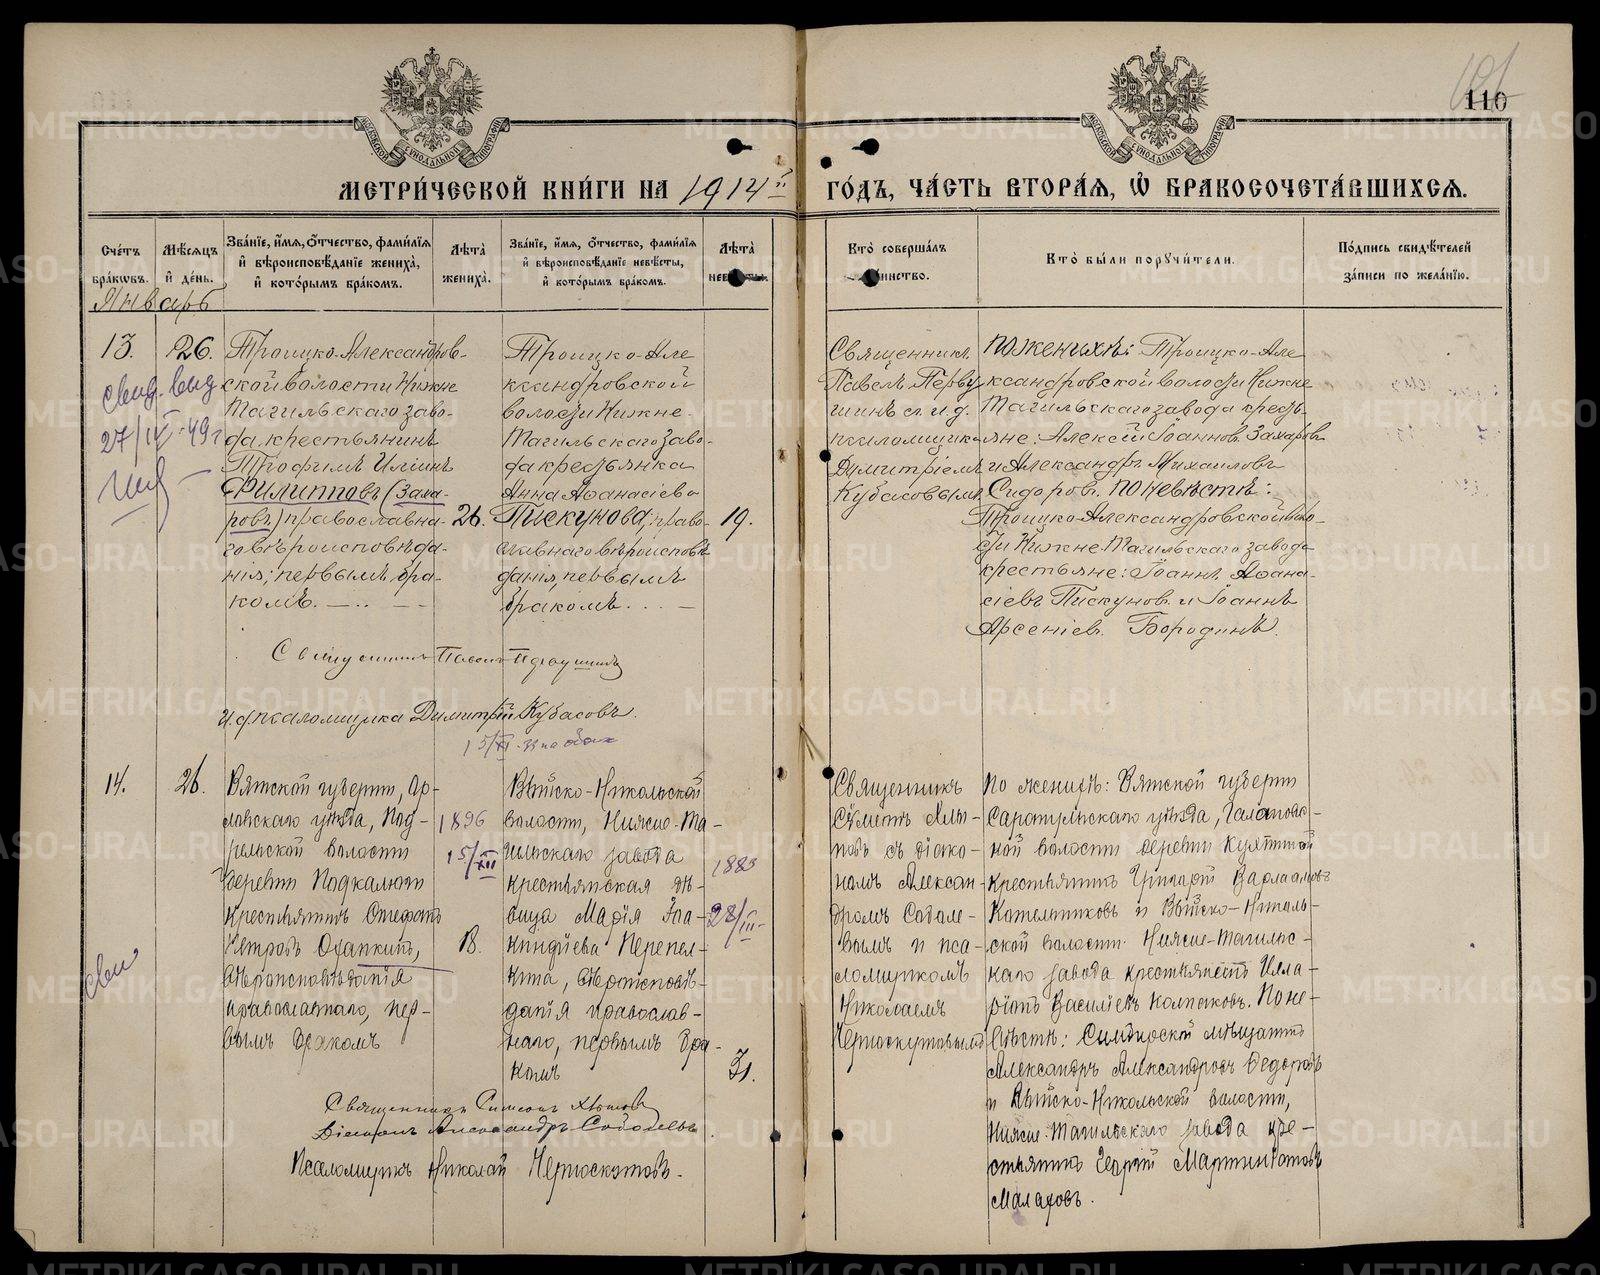 110
МЕТРИ́ЧЕСКОЙ КНИ́ГИ НА 1914й ГО́ДЪ, ЧА́СТЬ ВТОРА́Я, Ѿ БРАКОСОЧЕТА́ВШИХСЯ.
Сче́тъ бра́кѡвъ.
Мѣ́сяцъ и́ де́нь.
Зва́нїе, и́мя, ѻ́тчество, фами́лїя и́ вѣроисповѣ́данїе жениха̀, и́ кото́рымъ бра́комъ.
Лѣта̀ жениха̀.
Зва́нїе, и́мя, ѻ́тчество, фами́лїя и́ вѣроисповѣ́данїе невѣ́сты, и́ кото́рымъ бра́комъ.
Лѣта̀
Кто̀ соверша́лъ
Кто̀ бы́ли порꙋчи́тели.
По́дпись свидѣ́телей за́писи по жела́нїю.
Январь
13.
26.
свид. выд
27/IV-49г
Троицко-Александров-
ской волости Нижне
Тагильскаго заво-
да, крестьянинъ
Трофимъ Илiинъ
Филипповъ (Заха-
ровъ) православна-
го вѣроисповѣда-
нiя; первымъ бра-
комъ.
26.
Троицко-Але
ксандровской
волости Нижне-
Тагильскаго заво-
да крестьянка
Анна Аѳанасiева
Пискунова, право-
славнаго вѣроисповѣ
данiя, первымъ
бракомъ.
19.
Священникъ
Павелъ Перву
шинъ съ и. д.
псаломщика
Димитрiемъ
Кубасовымъ
По женихѣ: Троицко-Але
ксандровской волости Нижне
Тагильскаго завода кресть-
яне: Алексiй Iоанновъ Захаровъ
и Александръ Михаиловъ
Сидоровъ. По невѣстѣ:
Троицко-Александровской воло-
сти Нижне-Тагильскаго завода
крестьяне: Iоаннъ Аѳана-
сiевъ Пискуновъ и Iоаннъ
Арсенiевъ Бородинъ.
Священникъ Павелъ Первушинъ
И. д. псаломщика Димитрiй Кубасовъ.
14.
26.
Вятской губернiи, Ор-
ловскаго уѣзда, Под-
рельской волости
деревни Подкалюги
крестьянинъ Стефанъ
Петровъ Охапкинъ,
вѣроисповѣданiя
православнаго, пер-
вымъ бракомъ
1896
15/XII
18.
Выйско-Никольской
волости, Нижне-Та-
гильскаго завода
крестьянская дѣ-
вица Марiя Гла-
Перепел-
кина, вѣроисповѣ-
данiя православ-
наго, первымъ бра-
комъ
1883
28/III
31.
Священникъ
Сѵмеонъ Хлы-
новъ съ дiако-
номъ Алексан-
дромъ Соболе-
вымъ и пса-
ломщикомъ
Николаемъ
Черноскутовымъ
По женихѣ: Вятской губернiи
Сарапульскаго уѣзда, Галанов-
ской волости деревни
крестьянинъ Григорiй Варлаамовъ
Котельниковъ и Выйско-Николь-
ской волости Нижне-Тагильс-
каго завода крестьянинъ Илла-
рiонъ Васильевъ Колпаковъ. По не-
вѣстѣ: Симбирскiй мѣщанинъ
Александръ Александровъ Ѳедоровъ
и Выйско-Никольской волости,
Нижне-Тагильскаго завода кре-
стьянинъ Георгiй Мартинiановъ
Малаховъ.
свид
Священникъ Симеонъ Хлыновъ
Дiаконъ Александръ Соболевъ
Псаломщикъ Николай Черноскутовъ.
METRIKI.GASO-URAL.RU